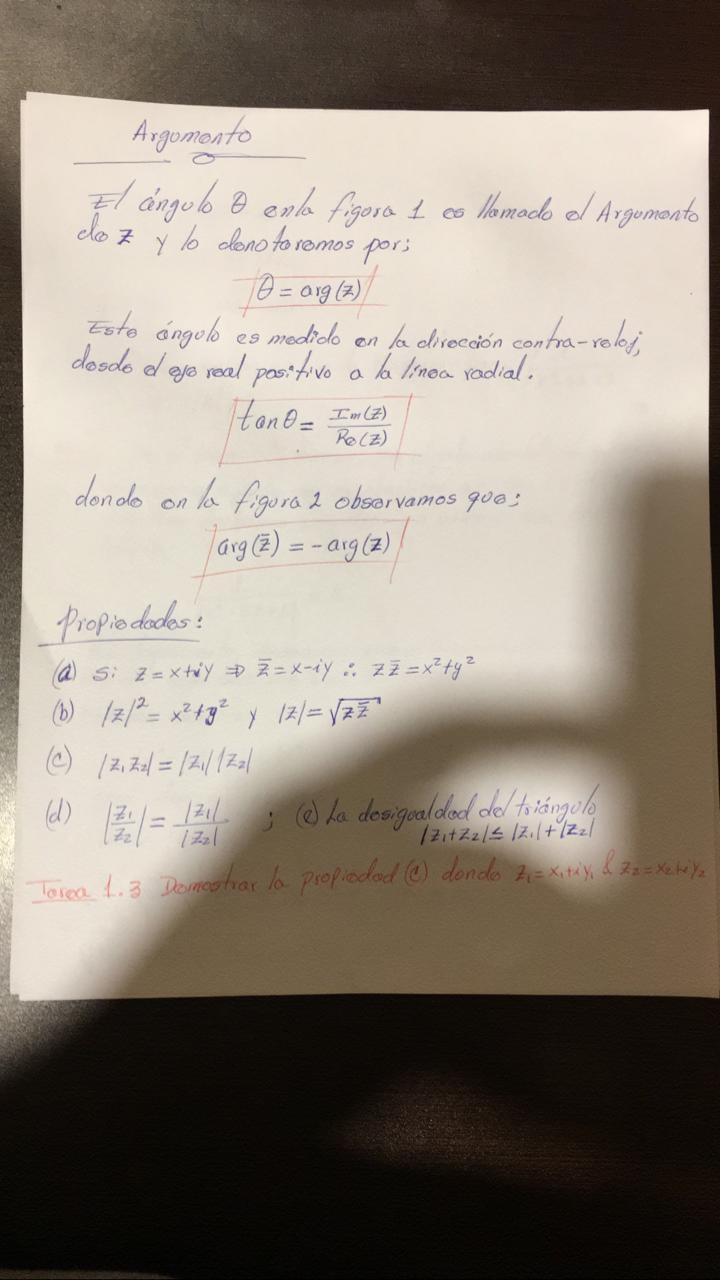 Argumento
El ángulo θ en la figura 1 es llamado el Argumento
de z y lo denotaremos por;
θ = arg(z)
Este ángulo es medido en la dirección contra-reloj,
desde el eje real positivo a la línea radial.
tanθ = Im(z)/Re(z)
donde en la figura 2 observamos que;
arg(z̄) = -arg(z)
Propiedades:
(a) Si z = x+iy ⇒ z̄ = x-iy ∴ zz̄ = x²+y²
(b) |z|² = x²+y² y |z| = √zz̄
(c) |z₁z₂| = |z₁||z₂|
(d) |z₁/z₂| = |z₁|/|z₂| ; (e) La desigualdad del triángulo
|z₁+z₂| ≤ |z₁|+|z₂|
Tarea 1.3 Demostrar la propiedad (c) donde z₁=x₁+iy₁ & z₂=x₂+iy₂